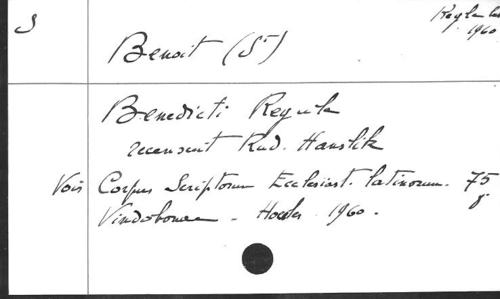 S
Regula
1960
Benoit (St)
Benedicti Regula
recensuit Rud. Hanslik
Vois Corpus Scriptorum Ecclesiast. latinorum. 75
Vindobonae - Hoelder 1960.